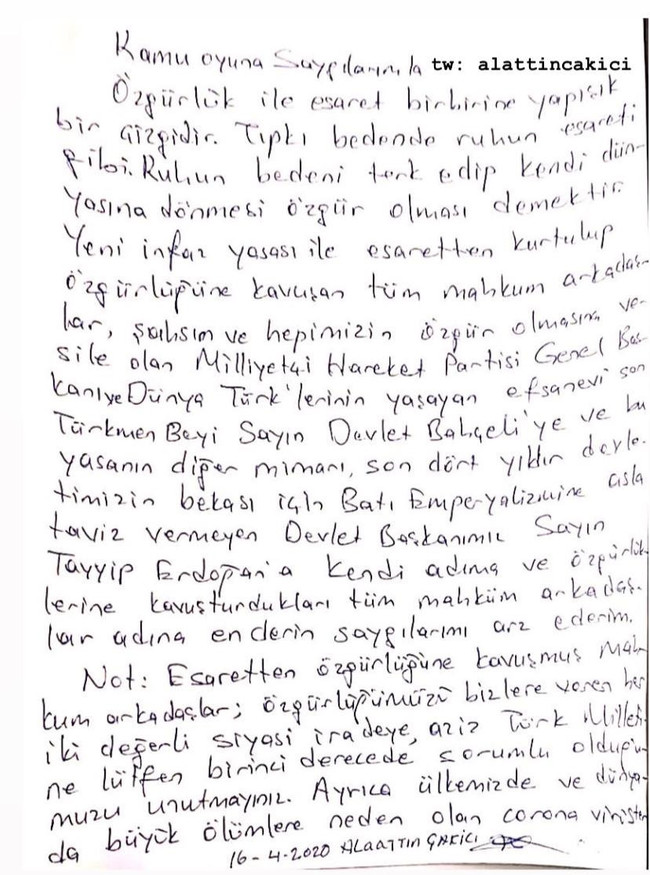 Kamu oyuna Saygılarımla tw: alattincakici
Özgürlük ile esaret birbirine yapışık
bir çizgidir. Tıpkı bedende ruhun esareti
gibi. Ruhun bedeni terk edip kendi dün-
yasına dönmesi özgür olması demektir.
Yeni infaz yasası ile esaretten kurtulup
özgürlüğüne kavuşan tüm mahkum arkadaş-
lar, şahsım ve hepimizin özgür olmasına ve-
sile olan Milliyetçi Hareket Partisi Genel Baş-
kanı ve Dünya Türk'lerinin yaşayan efsanevi son
Türkmen Beyi Sayın Devlet Bahçeli'ye ve bu
yasanın diğer mimarı, son dört yıldır devle-
timizin bekası için Batı Emperyalizmine asla
taviz vermeyen Devlet Başkanımız Sayın
Tayyip Erdoğan'a kendi adıma ve özgürlük
lerine kavuşturdukları tüm mahküm arkadaş-
lar adına en derin saygılarımı arz ederim.
Not: Esaretten özgürlüğüne kavuşmuş mah-
kum arkadaşlar; özgürlüğümüzü bizlere veren her
iki değerli siyasi iradeye, aziz Türk Milleti-
ne lütfen birinci derecede sorumlu olduğu-
muzu unutmayınız. Ayrıca ülkemizde ve dünya-
da büyük ölümlere neden olan corona
16-4-2020 ALAATTİN ÇAKICI